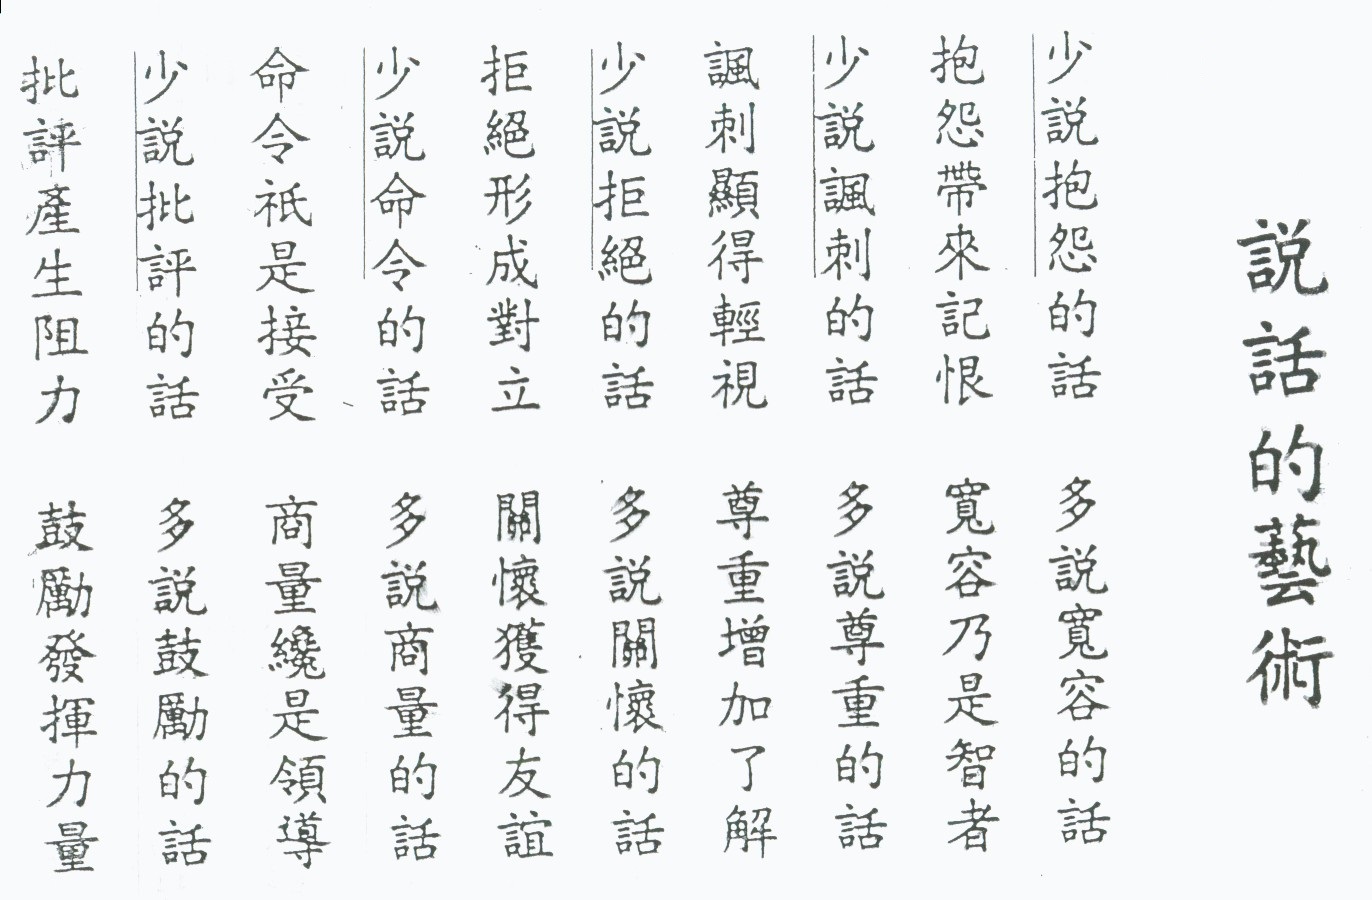 説話的藝術
少説抱怨的話 多説寬容的話
抱怨帶來記恨 寬容乃是智者
少説諷刺的話 多説尊重的話
諷刺顯得輕視 尊重增加了解
少説拒絕的話 多説關懷的話
拒絕形成對立 關懷獲得友誼
少説命令的話 多説商量的話
命令祇是接受 商量纔是領導
少説批評的話 多説鼓勵的話
批評產生阻力 鼓勵發揮力量